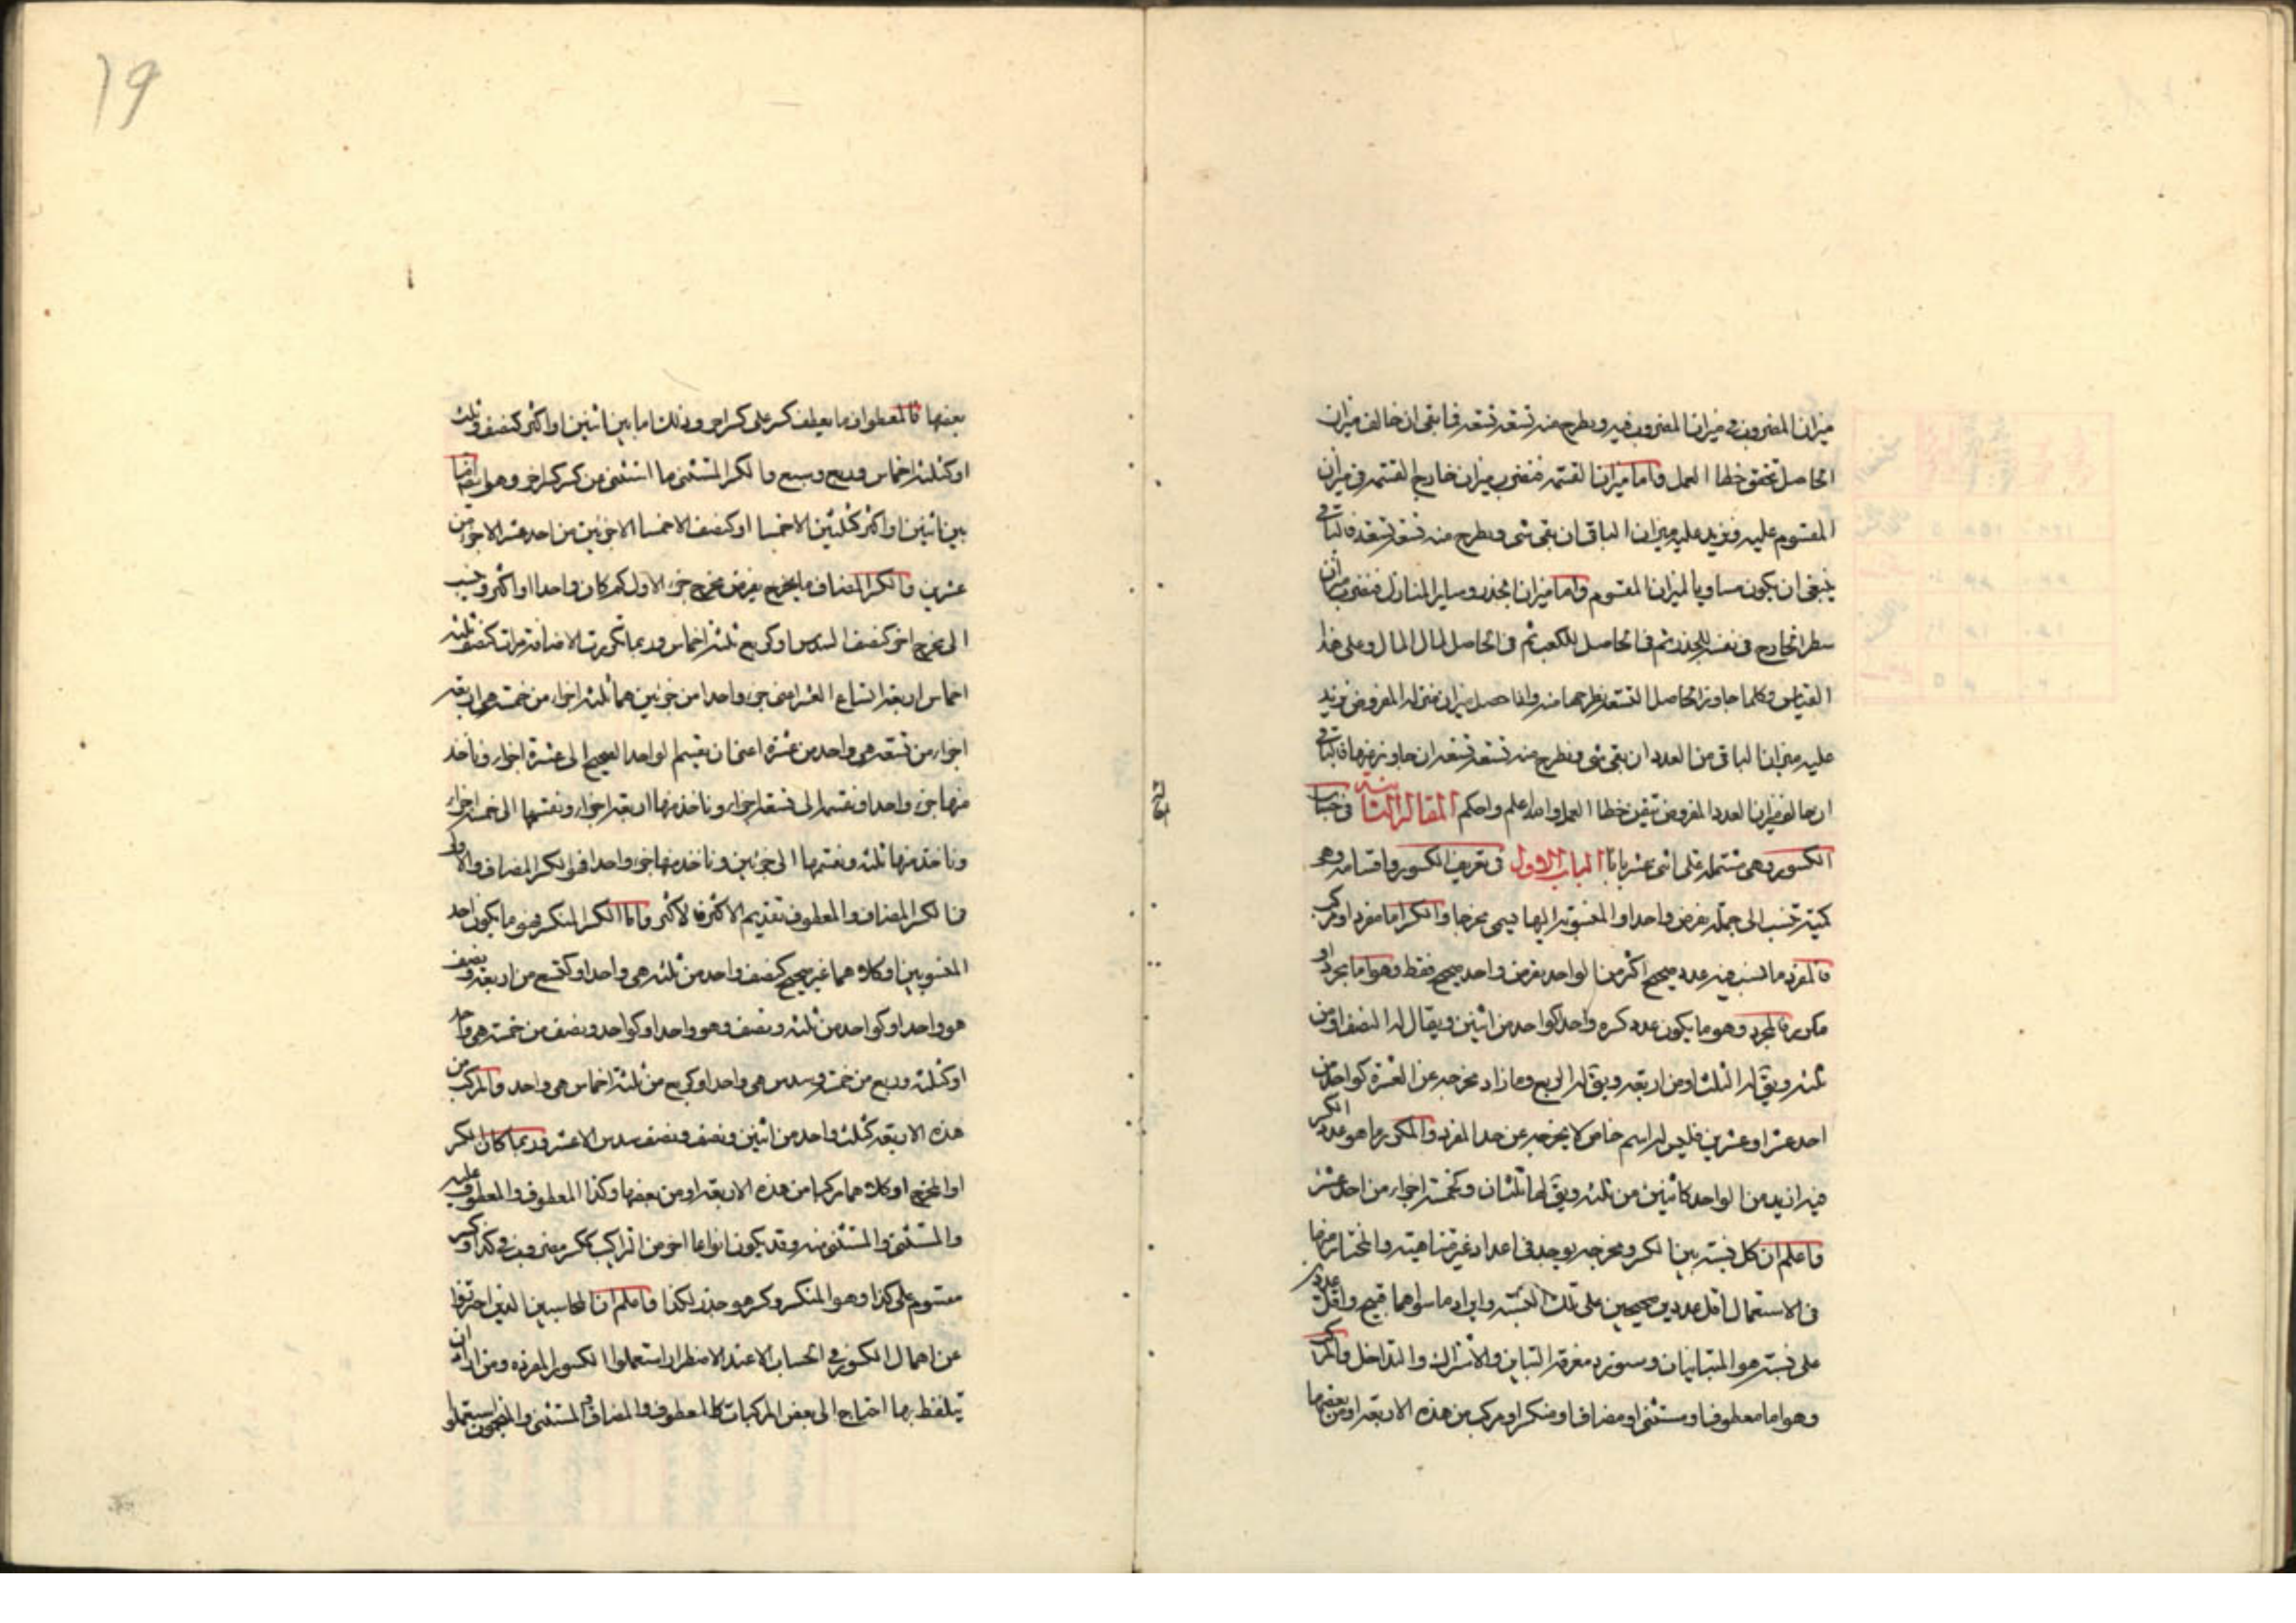 ميزان المضروب في ميزان المضروب فيه ويطرح منه تسعة تسعة فما بقي ان خالف ميزان
الحاصل تحقق خطا العمل واما ميزان القسمة فنضرب ميزان خارج القسمة في ميزان
المقسوم عليه ونزيد عليه ميزان الباقي ان بقي شي ويطرح منه تسعة تسعة فالباقي
ينبغي ان يكون مساويا لميزان المقسوم واما ميزان الجذر وساير المنازل فنضرب ميزان
سطر الخارج في نفسه للجذر ثم في الحاصل للكعب ثم في الحاصل لمال المال وعلى هذا
القياس وكلما جاوز الحاصل التسعة نطرحها منه واذا حصل ميزان منزله المفروض نزيد
عليه ميزان الباقي من العدد ان بقي شي ونطرح منه تسعة تسعة ان جاوزها فالباقي
ان خالف ميزان العدد المفروض تيقن خطا العمل والله اعلم واحكم المقالة الثانية في حساب
الكسور وهي مشتملة على اثني عشر بابا الباب الاول في تعريف الكسور واقسامه وهو
كمية تنسب الى جملة يفرض واحدا والمنسوب اليها يسمى مخرجا والكسر اما مفرد او مركب
فالمفرد ما نسب فيه عدد صحيح اكثر من الواحد يفرض واحد صحيح فقط وهو اما مجرد او
مكرر فالمجرد وهو ما يكون عدد كسره واحدا كواحد من اثنين ويقال له النصف او من
ثلثة ويق له الثلث او من اربعة ويق له الربع وما زاد مخرجه عن العشرة كواحد من
احد عشر او عشرين فليس له اسم خاص لا يخرجه عن حد المفرد والمكرر ما هو عدد الكسر
فيه ازيد من الواحد كاثنين من ثلثة ويق لها ثلثان وكخمسة اجزاء من احد عشر
واعلم ان كل نسبة بين الكسر ومخرجه يوجد في اعداد غير متناهية والمختار منها
في الاستعمال اقل عددين صحيحين على تلك النسبة وايراد ما سواهما قبيح واقل عدد
على نسبة هو المتباينان وسنورد معرفة التباين والاشتراك والتداخل والمركب
وهو اما معطوف او مستثنى او مضاف او منكسر او مركب من هذه الاربعة او من بعضها
19
بعضها فالمعطوف ما يعطف كسر على كسر اخر وذلك اما بين اثنين او اكثر كنصف وثلث
او كثلثة اخماس وربع وسبع والكسر المستثنى ما استثنى من كسر كسر اخر وهو ايضا
بين اثنين او اكثر كثلثين الا خمسا او كنصف الا خمسا الا جزئين من احد عشر الا جزء من
عشرين والكسر المضاف ما يخرج يفرض مخرج جزء الاول كم كان واحدا او اكثر وينسب
الى مخرج اخر كنصف السدس او كربع ثلثة اخماس وربما تكررت الاضافة مرات كنصف ثلثة
اخماس اربعة اتساع العشر اعني جزء واحدا من جزئين هما ثلثة اجزاء من خمسة هي اربعة
اجزاء من تسعة هي واحد من عشرة اعني ان نقسم الواحد الصحيح الى عشرة اجزاء وناخذ
منها جزء واحدا ونقسمه الى تسعة اجزاء وناخذ منها اربعة اجزاء ونقسمها الى خمسة اجزاء
وناخذ منها ثلثة ونقسمها الى جزئين وناخذ منها جزء واحدا فهو الكسر المضاف والاولى
في الكسر المضاف والمعطوف تقديم الاكثر فالاكثر واما الكسر المنكسر فهو ما يكون احد
المنسوبين او كلاهما غير صحيح كنصف واحد من ثلثة هي واحد او كتسع من اربعة ونصف
هو واحد او كواحد من ثلثة ونصف وهو واحد او كواحد ونصف من خمسة هي واحد
او كثلثة وربع من خمسة وسدس هي واحد او كربع من ثلثة اخماس هي واحد والمركب من
هذه الاربعة كثلث واحد من اثنين ونصف ونصف سدس الا عشر وربما كان الكسر
او المخرج او كلاهما مركبا من هذه الاربعة او من بعضها وكذا المعطوف والمعطوف عليه
والمستثنى والمستثنى منه وقد يكون انواعا اخر من التراكيب ككسر مضروب في كذا وكسر
مقسوم على كذا وهو المنكسر وكسر هو جذر لكذا واعلم ان المحاسبين الذين احترزوا
عن اهمال الكسور في الحساب الا عند الاضطرار استعملوا الكسور المفردة ومن اراد ان
يتلفظ بها احتاج الى بعض المركبات كالمعطوف والمضاف والمستثنى والمنجمون استعملوا